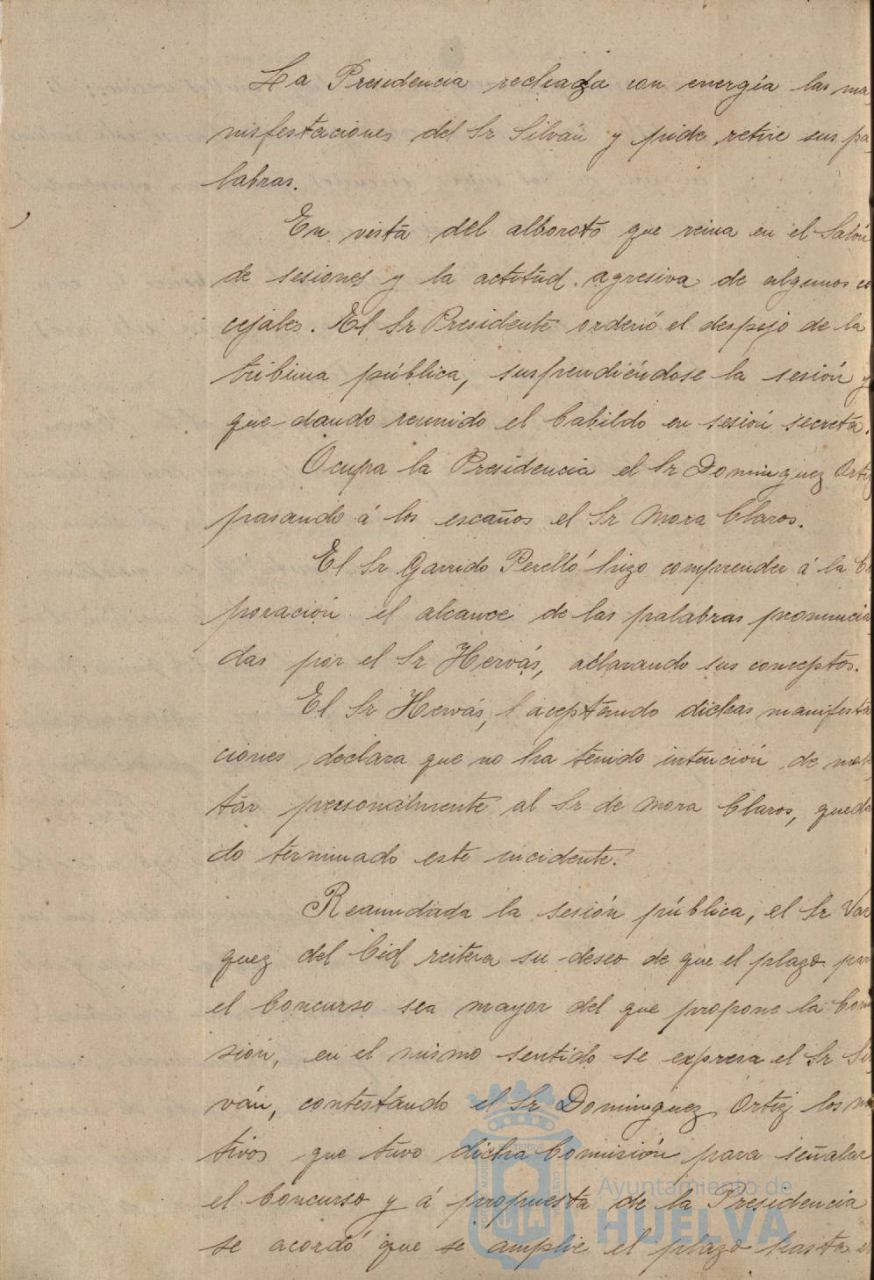 La Presidencia rechaza con energía las ma
nisfestaciones del Sr Silván y pide retire sus pa
labras.
En vista del alboroto que reina en el Salón
de sesiones y la actitud agresiva de algunos co
cejales. El Sr Presidente ordenó el despejo de la
tribuna pública, suspendiéndose la sesión y
quedando reunido el Cabildo en sesión secreta.
Ocupa la Presidencia el Sr Dominguez Ortiz
pasando á los escaños el Sr Mora Claros.
El Sr Garrido Perelló hizo comprender á la Co
poración el alcance de las palabras pronuncia
das por el Sr Hervás, aclarando sus conceptos.
El Sr Hervás, aceptando dichas manifesta
ciones declara que no ha tenido intención de moles
tar personalmente al Sr de Mora Claros, queda
do terminado este incidente.
Reanudada la sesión pública, el Sr Vaz
quez del Cid reitera su deseo de que el plazo para
el Concurso sea mayor del que propone la Comi
sión, en el mismo sentido se expresa el Sr Sil
ván, contestando el Sr Dominguez Ortiz los mo
tivos que tuvo dicha Comisión para señalar
el Concurso y á propuesta de la Presidencia
se acordó que se amplie el plazo hasta el
Ayuntamiento de
HUELVA